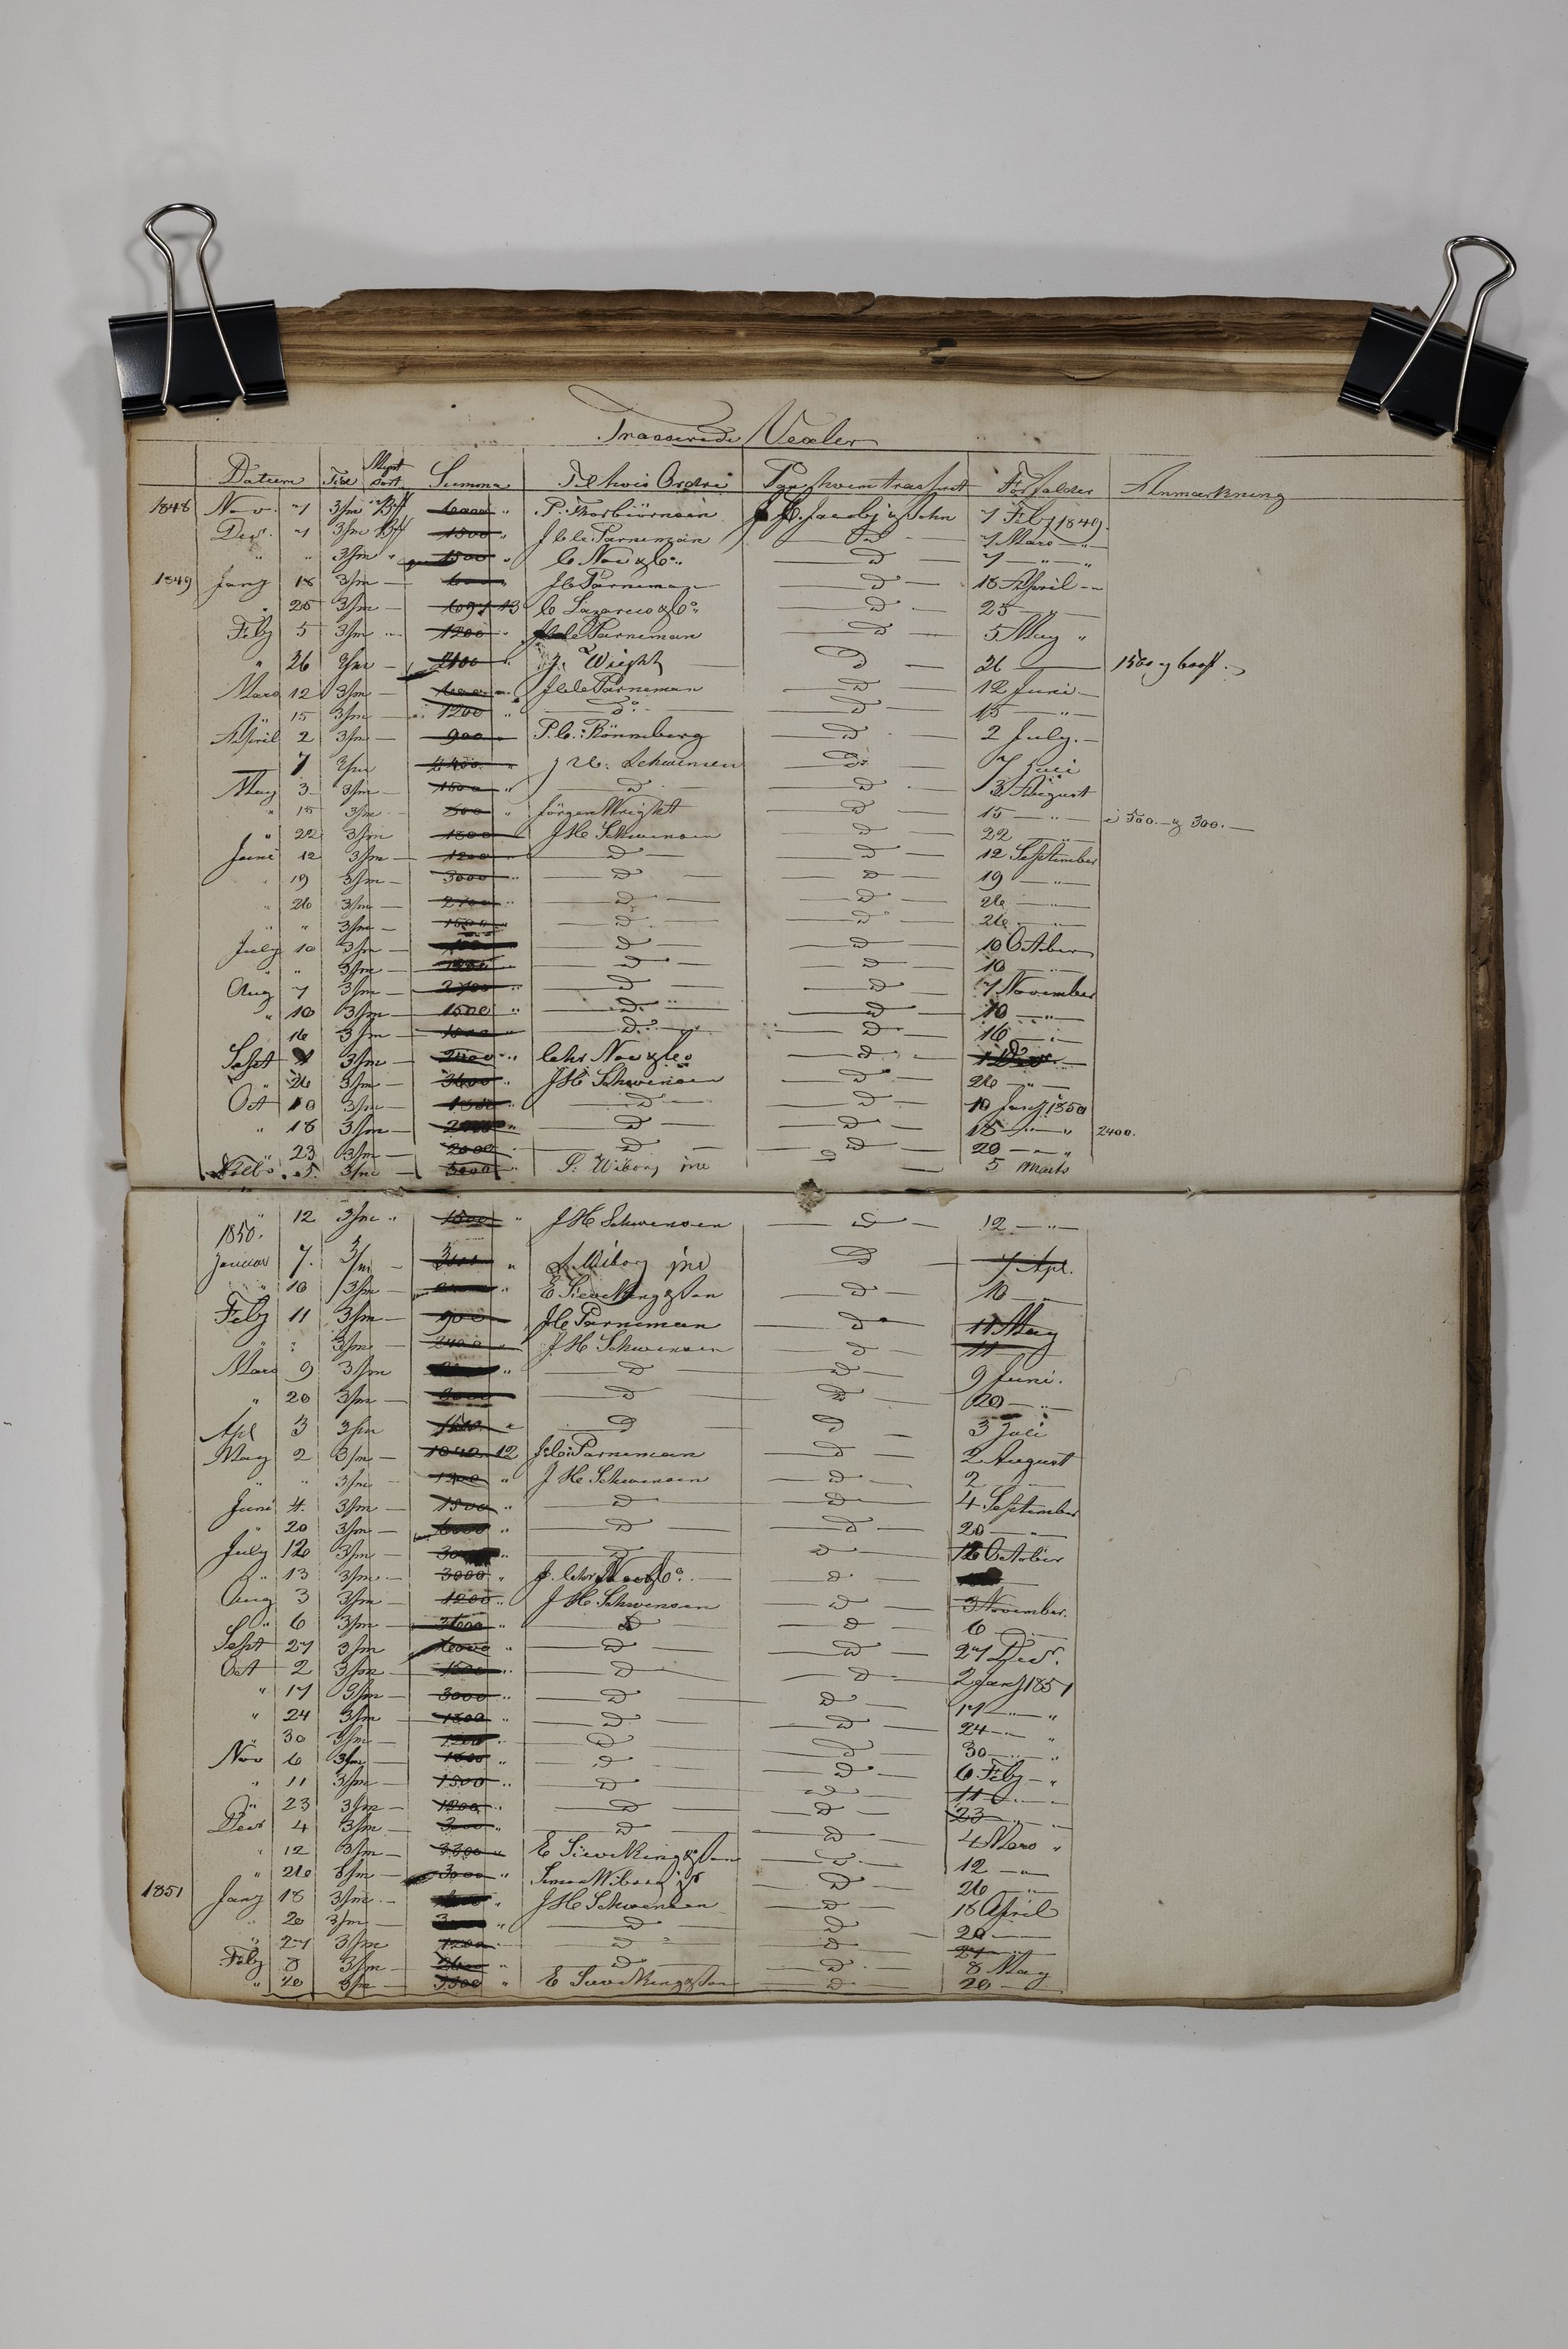 Trasserede Vexler
Datum Tid Mynt sort Summa Til hvis Ordre Paa hvem trasseret Forfalder Anmærkning
1848 Nov. 7 3/m 6000 " P. Thorbiörnsen J. H. Jacobj & Sohn 7 Feby 1849.
Dec. 7 3/m 1500 " J C C Parneman D 7 Mars — "
" " 3/m " 1500 " C Noe & Co. D 7 — " — "
1849 Jany 18 3/m — J C Parneman D 18 April —
" 25 3/m — 1097 13 C Lazareus & Co. D 25 — "
Feby 5 3/m 1200 " Parneman D 5 May "
" 26 3/m — 2100 " J. Wright D 26 — 1500 og
Mars 12 3/m — J C C Parneman D 12 Juni —
" 15 3/m — 1200 " Do. D 15 — " —
April 2 3/m — 900 " P. C. Rönneberg D 2 July. —
— 7 3/m 2400 " Schwensen D 7 Juli
May 3 3/m — 1500 " D D 3 August
" 15 3/m 800 " Jörgen Wright D 15 — " — i 500. — & 300. —
" 22 3/m 1800 J H Schwensen D 22 — " —
Juni 12 3/m — 1200 " D D 12 September
" 19 3/m — 3000 " D D 19 — " —
" 26 3/m — 2700 " D D 26 — " —
" " 3/m — 1500 " D D 26 — " —
July 10 3/m — D D 10 October
" " 3/m — D D 10 — " —
Aug 7 3/m — 2700 " D D 7 November
" 10 3/m — 1500 " D D 10 — " —
16 3/m — " D D 16 — " —
Sept 3/m — 2400 " Chr Noe & Co D 1 Dec
" 26 3/m — 3600 " J H Schwensen D 26 — " —
Oct 10 3/m — " D D 10 Jany 1850
" 18 3/m — " D D 18 — " — " 2400.
" 23 3/m — 2000 D D 29 — " — "
5. 3/m — 3000 " S. Wiborg jnr D 5 Marts
" 12 3/m " 1500 " J H Schwensen D 12 — " —
1850.
Januar 7. 3/m — 3000 " S. Wiborg jnr D 7 Apl.
" 10 3/m — " E Sieveking & Son D 10 —
Feby 11 3/m — 900 " J C Parneman D 11 May
" " 3/m — 2400 " J H Schwensen D 11 —
Mars 9 3/m " D D 9 Juni.
" 20 3/m — D D 20 — " —
Apl 3 3/m 1500 " D D 3 Juli
May 2 3/m — 1042 12 J. C. Parneman D 2 August
" " 3/m " J H Schwensen D 2 —
Juni 4. 3/m — 1500 " D D 4. September
" 20 3/m — 6000 " D D 20 — " —
July 12 3/m — " D D 12 October
" 13 3/m — 3000 " J. Chr Noe & Co. D
Aug 3 3/m — 1200 " J H Schwensen D 3 November.
" 6 3/m — 2600 " D D 6 — " —
Sept 27 3/m 6000 " D D 27 Dec.
Oct 2 3/m — 1500 " D D 2 Jany 1851
" 17 3/m — 3000 " D D 17 — " — "
" 24 3/m — 1800 " D D 24 — " — "
" 30 3/m — 1200 " D D 30 — " — "
Nov 6 3/m — 1800 " D D 6 Feby — "
" 11 3/m — 1500 " D D 11 — " — "
" 23 3/m — " D D 23 — " — "
Decr 4 3/m — " D D 4 Mars "
" 12 3/m — 3300 " E Sieveking & Son D 12 — "
" 26 3/m — 3000 " Simon Wiborg jr D 26 — " —
1851 Jany 18 3/m — " J H Schwensen D 18 April
" 20 3/m — " D D 20 — " —
" 27 3/m 1200 " D D 27 — " —
Feby 8 3/m — " D D 8 May
" 20 3/m — 3300 " E Sieveking & Son D 20 —